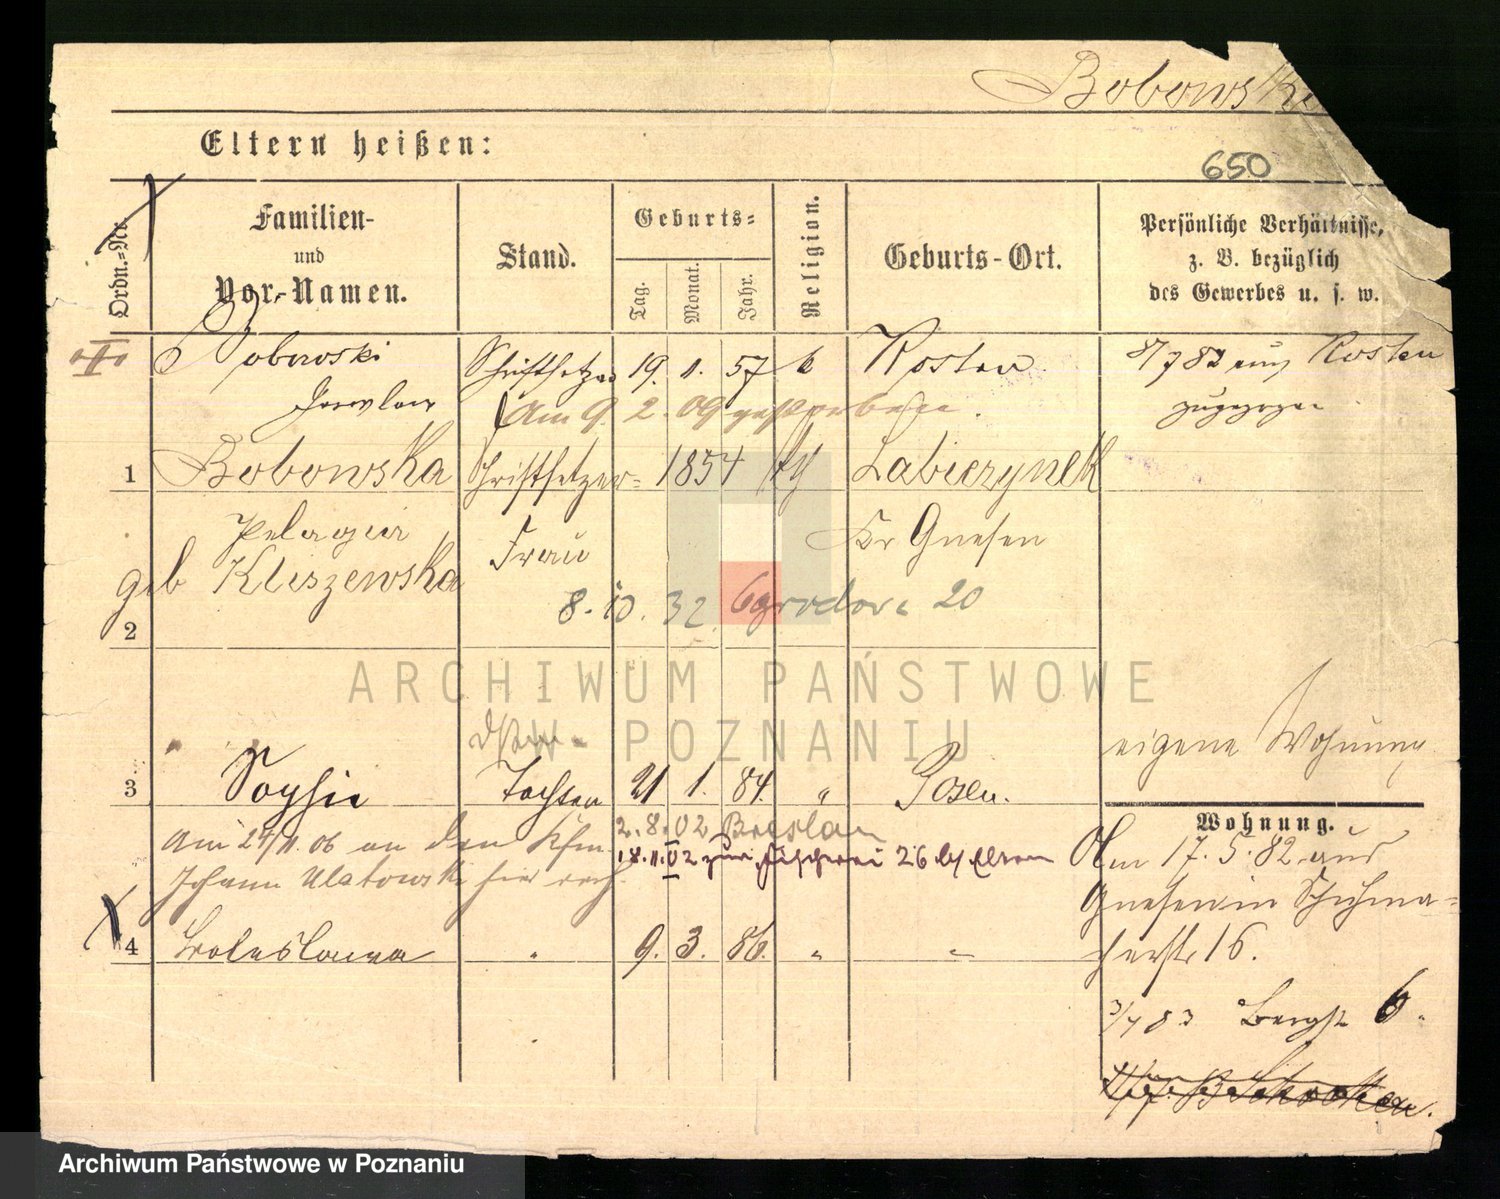 Bobowska
650
Eltern heißen:
Ordn.-Nr.
Familien-
und
Vor-Namen.
Stand.
Geburts-
Tag.
Monat.
Jahr.
Religion.
Geburts-Ort.
Persönliche Verhältnisse,
z. B. bezüglich
des Gewerbes u. s. w.
Bobowski Schriftsetzer 19. 1. 57 k Kosten
8/7 82 aus Kosten
zugezogen
Am 9. 2. 09 gestorben.
1 Bobowska Schriftsetzer- 1854 Labiszynek
Pelagia Frau Kr Gnesen
geb Kliszewska
8. 10. 32. Ogrodowa 20
2
ARCHIWUM PAŃSTWOWE
W POZNANIU
eigene Wohnung
3 Sophie Tochter 21 1. 84. " Posen.
Wohnung.
Am 24/11. 06 an den Kfm
Johann Ulatowski hier
2. 8. 02 Breslau
18. 11. 02 zur Fischerei 26 b/ Eltern
Am 17. 5. 82 aus
Gnesen in Schuhma-
cherstr 16.
4 Boleslawa " 9. 3. 86. " "
3/7 83 Bergstr 6.
Archiwum Państwowe w Poznaniu